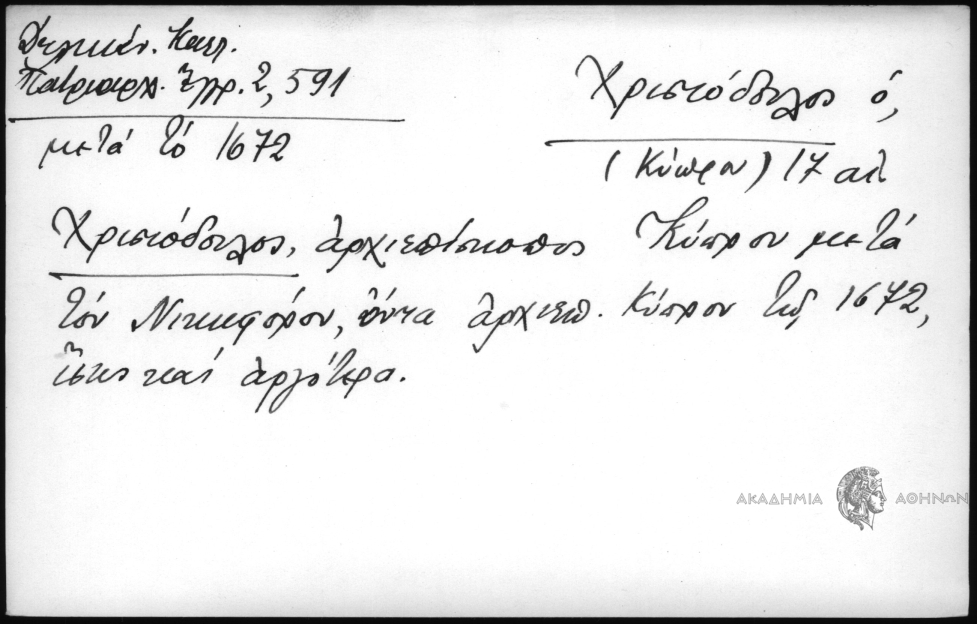 Δελικάν. Κατ.
Πατριαρχ. Ἔγγρ. 2, 591
μετά τό 1672
Χριστόδουλος ὁ,
(Κύπρου) 17 αἰ.
Χριστόδουλος, ἀρχιεπίσκοπος Κύπρου μετά
τόν Νικηφόρον, ὄντα ἀρχιεπ. Κύπρου τῷ 1672,
ἴσως καί ἀργότερα.
ΑΚΑΔΗΜΙΑ ΑΘΗΝΩΝ